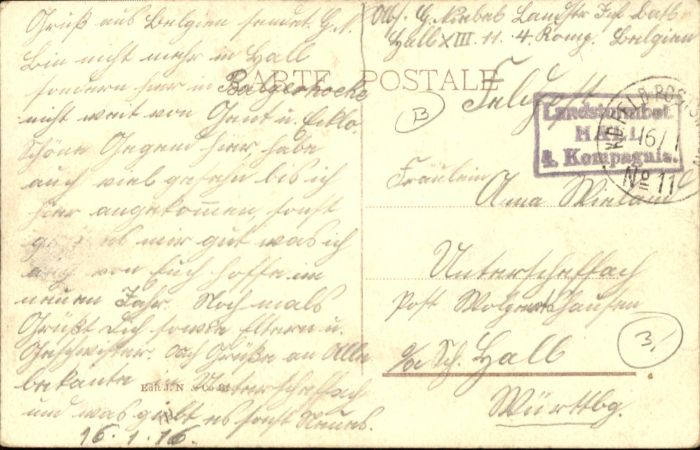 Gruß aus Belgien sendet G. N.
Bin nicht mehr in Hall
sondern hier in Balgerhocke
nicht weit von Gent u. Eeklo.
Schöne Gegend hier habe
auch viel gesehn bis ich
hier angekommen, sonst
geht es mir gut was ich
auch von Euch hoffe im
neuen Jahr. Noch mals
Grüßt Dich sowie Eltern u.
Geschwister. Och Grüße an Alle
bekante Unterscheffach
und was giebt es sonst Neues.
16.1.16.
CARTE POSTALE
Edit. J. N
Abs. G. Niebel Landstr Inf Batl
Hall XIII. 11. 4. Komp. Belgien
Feldpost
B
Landsturmbat.
HALL
4. Kompagnie.
K.D. FELDPOST
16/1
No 11
Fräulein
Anna Wieland
Unterscheffach
Post Wolpertshausen
Sch. Hall
Württbg.
3.